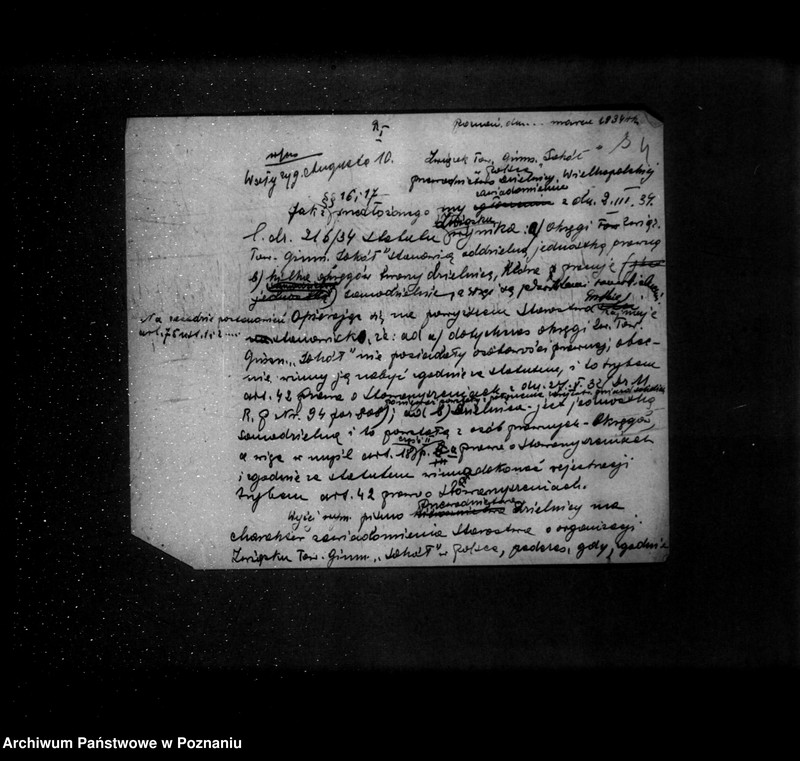 Poznań, dn. ... marca 1934 r.
34
Wały Zyg. Augusta 10.
Związek Tow. Gimn. "Sokół" w
Polsce
przewodnictwo Dzielnicy Wielkopolskiej
§§ 16 i 17
zawiadomienie
Jak z przedłożonego my z dn. 2.III.34.
Związku
l. dz. 216/34 statutu wynika: a) Okręgi Związ.
Tow. Gimn. "Sokół" stanowią oddzielną jednostkę prawną
b) kilka okręgów tworzy dzielnicę, która
samodzielnie
Na zasadzie postanowień Opierając się na powyższem Starostwo Grodzkie
art. 75 ust. 1 i 2 stanowisko, że: ad a) dotychczas okręgi Zw. Tow.
Gimn. "Sokół" nie posiadały osobowości prawnej, obec-
nie winny ją nabyć zgodnie ze statutem, i to trybem
art. 42 prawa o Stowarzyszeniach z dn. 27.X.32 (Dz. U.
R. P. Nr. 94 poz 808); ad b) Dzielnica jest jednostką
samodzielną i to powstałą z osób prawnych - Okręgów,
a więc w myśl art. prawa o stowarzyszeniach
i zgodnie ze statutem winna dokonać rejestracji
trybem art. 42 prawa o Stowarzyszeniach.
Przewodnictwa
Wyżej wym. pismo dzielnicy ma
charakter zawiadomienia Starostwa o organizacji
Związku Tow. Gimn. "Sokół" w Polsce, podczas, gdy, zgodnie
Archiwum Państwowe w Poznaniu